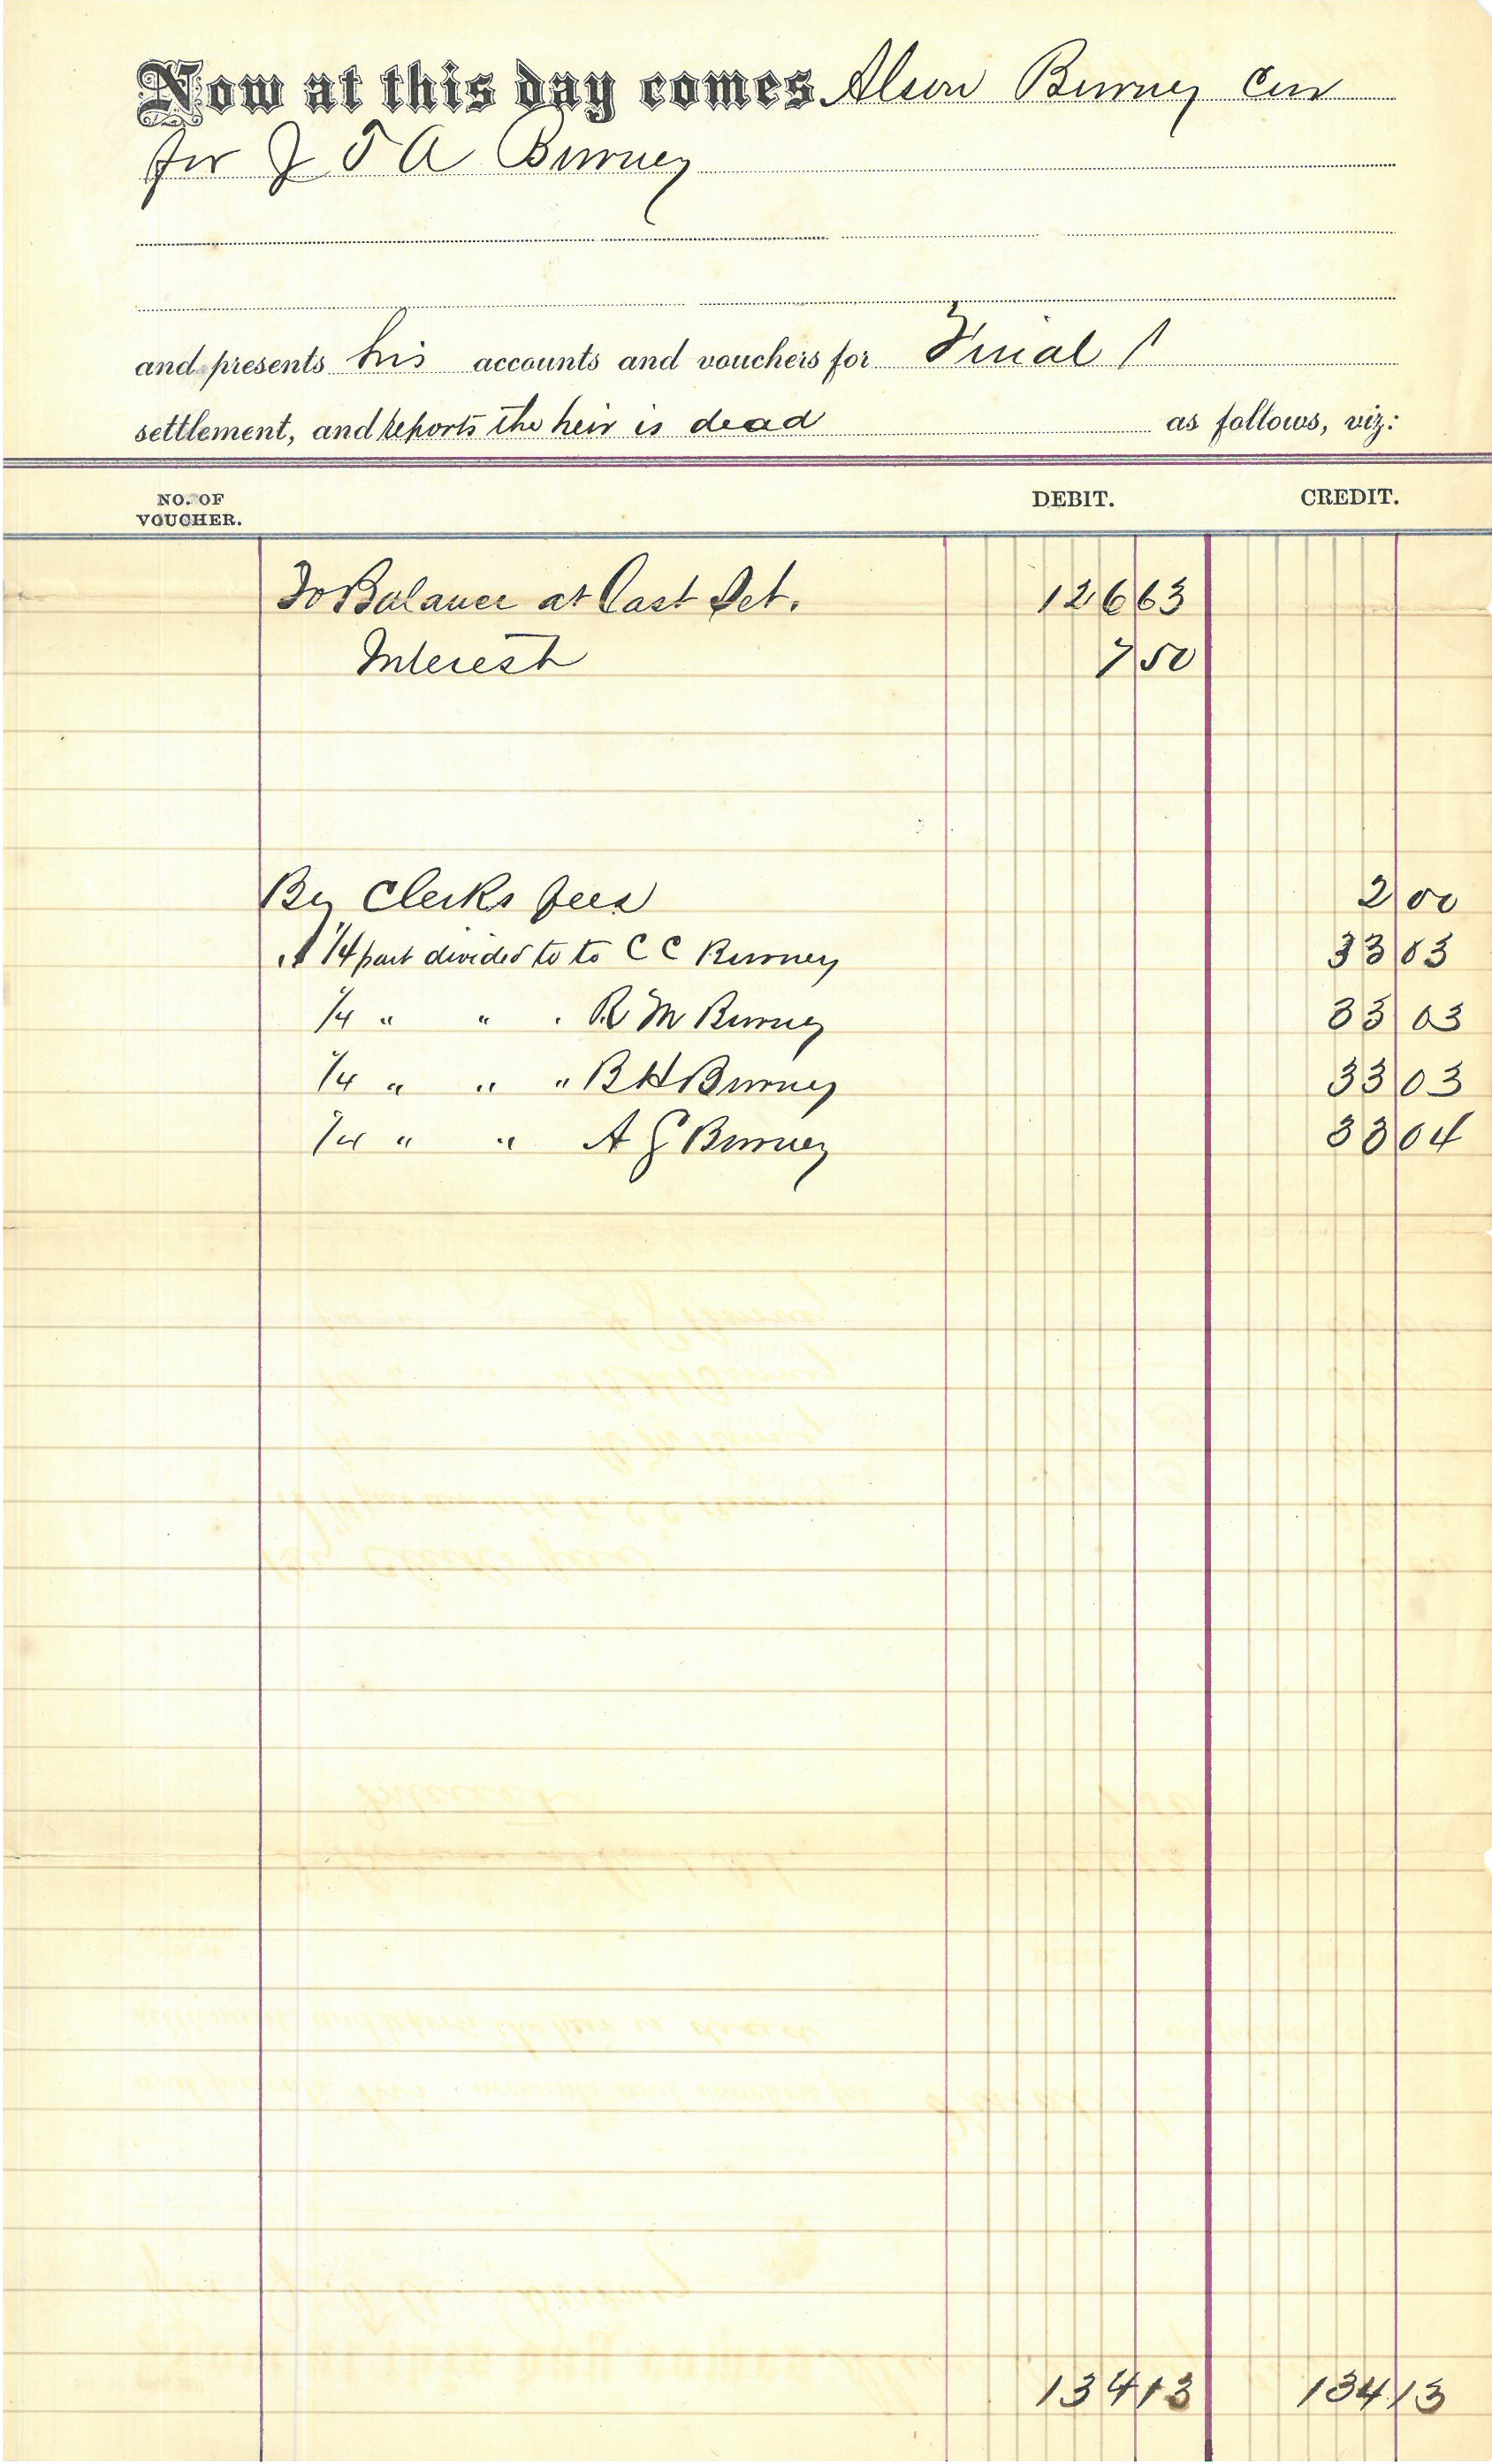 Now at this day comes Alson Burney Cur
for J T A Burney
and presents his accounts and vouchers for Final
settlement, and reports the heir is dead as follows, viz:
NO. OF VOUCHER. DEBIT. CREDIT.
To Balance at Last Set. 126 63
Interest 7 50
By Clerks fees 2 00
" 1/4 part divided to to C C Burney 33 03
1/4 " " " R M Burney 33 03
1/4 " " " B H Burney 33 03
1/4 " " A G Burney 33 04
134 13 134 13